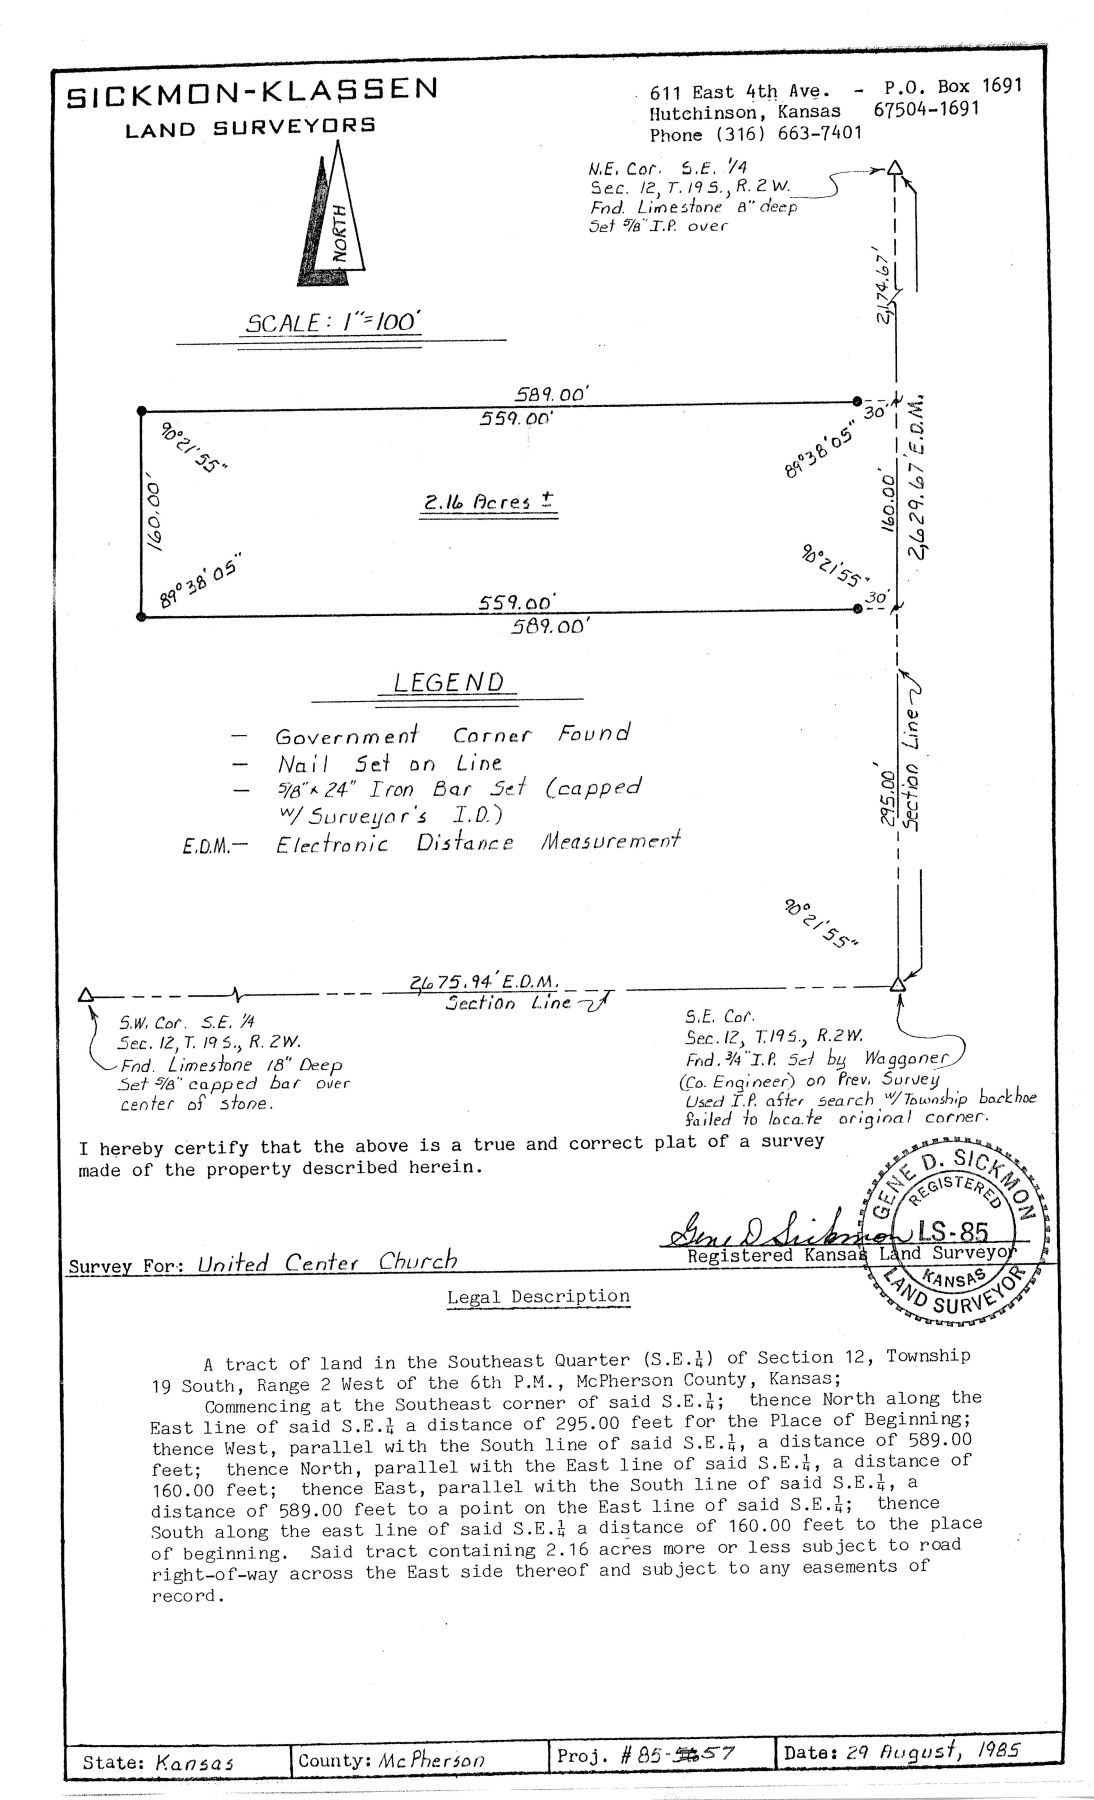 SICKMON-KLASSEN
LAND SURVEYORS
611 East 4th Ave. - P.O. Box 1691
Hutchinson, Kansas 67504-1691
Phone (316) 663-7401
N.E. Cor. S.E. 1/4
Sec. 12, T. 19 S., R. 2 W.
Fnd. Limestone 8" deep
Set 5/8" I.P. over
NORTH
SCALE: 1"=100'
2,174.67'
589.00'
559.00'
30'
90°21'55"
89°38'05"
160.00'
2.16 Acres ±
160.00'
2,629.67' E.D.M.
89°38'05"
90°21'55"
559.00'
30'
589.00'
LEGEND
— Government Corner Found
— Nail Set on Line
— 5/8" x 24" Iron Bar Set (capped
w/ Surveyor's I.D.)
E.D.M.— Electronic Distance Measurement
295.00'
Section Line
90°21'55"
2,675.94' E.D.M.
Section Line
S.W. Cor. S.E. 1/4
Sec. 12, T. 19 S., R. 2W.
Fnd. Limestone 18" Deep
Set 5/8" capped bar over
center of stone.
S.E. Cor.
Sec. 12, T.19 S., R.2W.
Fnd. 3/4" I.P. Set by Waggoner
(Co. Engineer) on Prev. Survey
Used I.P. after search w/Township backhoe
failed to locate original corner.
I hereby certify that the above is a true and correct plat of a survey
made of the property described herein.
Gene D Sickmon
Registered Kansas Land Surveyor
GENE D. SICKMON
REGISTERED
LS-85
KANSAS
LAND SURVEYOR
Survey For: United Center Church
Legal Description
A tract of land in the Southeast Quarter (S.E.¼) of Section 12, Township
19 South, Range 2 West of the 6th P.M., McPherson County, Kansas;
Commencing at the Southeast corner of said S.E.¼; thence North along the
East line of said S.E.¼ a distance of 295.00 feet for the Place of Beginning;
thence West, parallel with the South line of said S.E.¼, a distance of 589.00
feet; thence North, parallel with the East line of said S.E.¼, a distance of
160.00 feet; thence East, parallel with the South line of said S.E.¼, a
distance of 589.00 feet to a point on the East line of said S.E.¼; thence
South along the east line of said S.E.¼ a distance of 160.00 feet to the place
of beginning. Said tract containing 2.16 acres more or less subject to road
right-of-way across the East side thereof and subject to any easements of
record.
State: Kansas
County: McPherson
Proj. #85-57
Date: 29 August, 1985